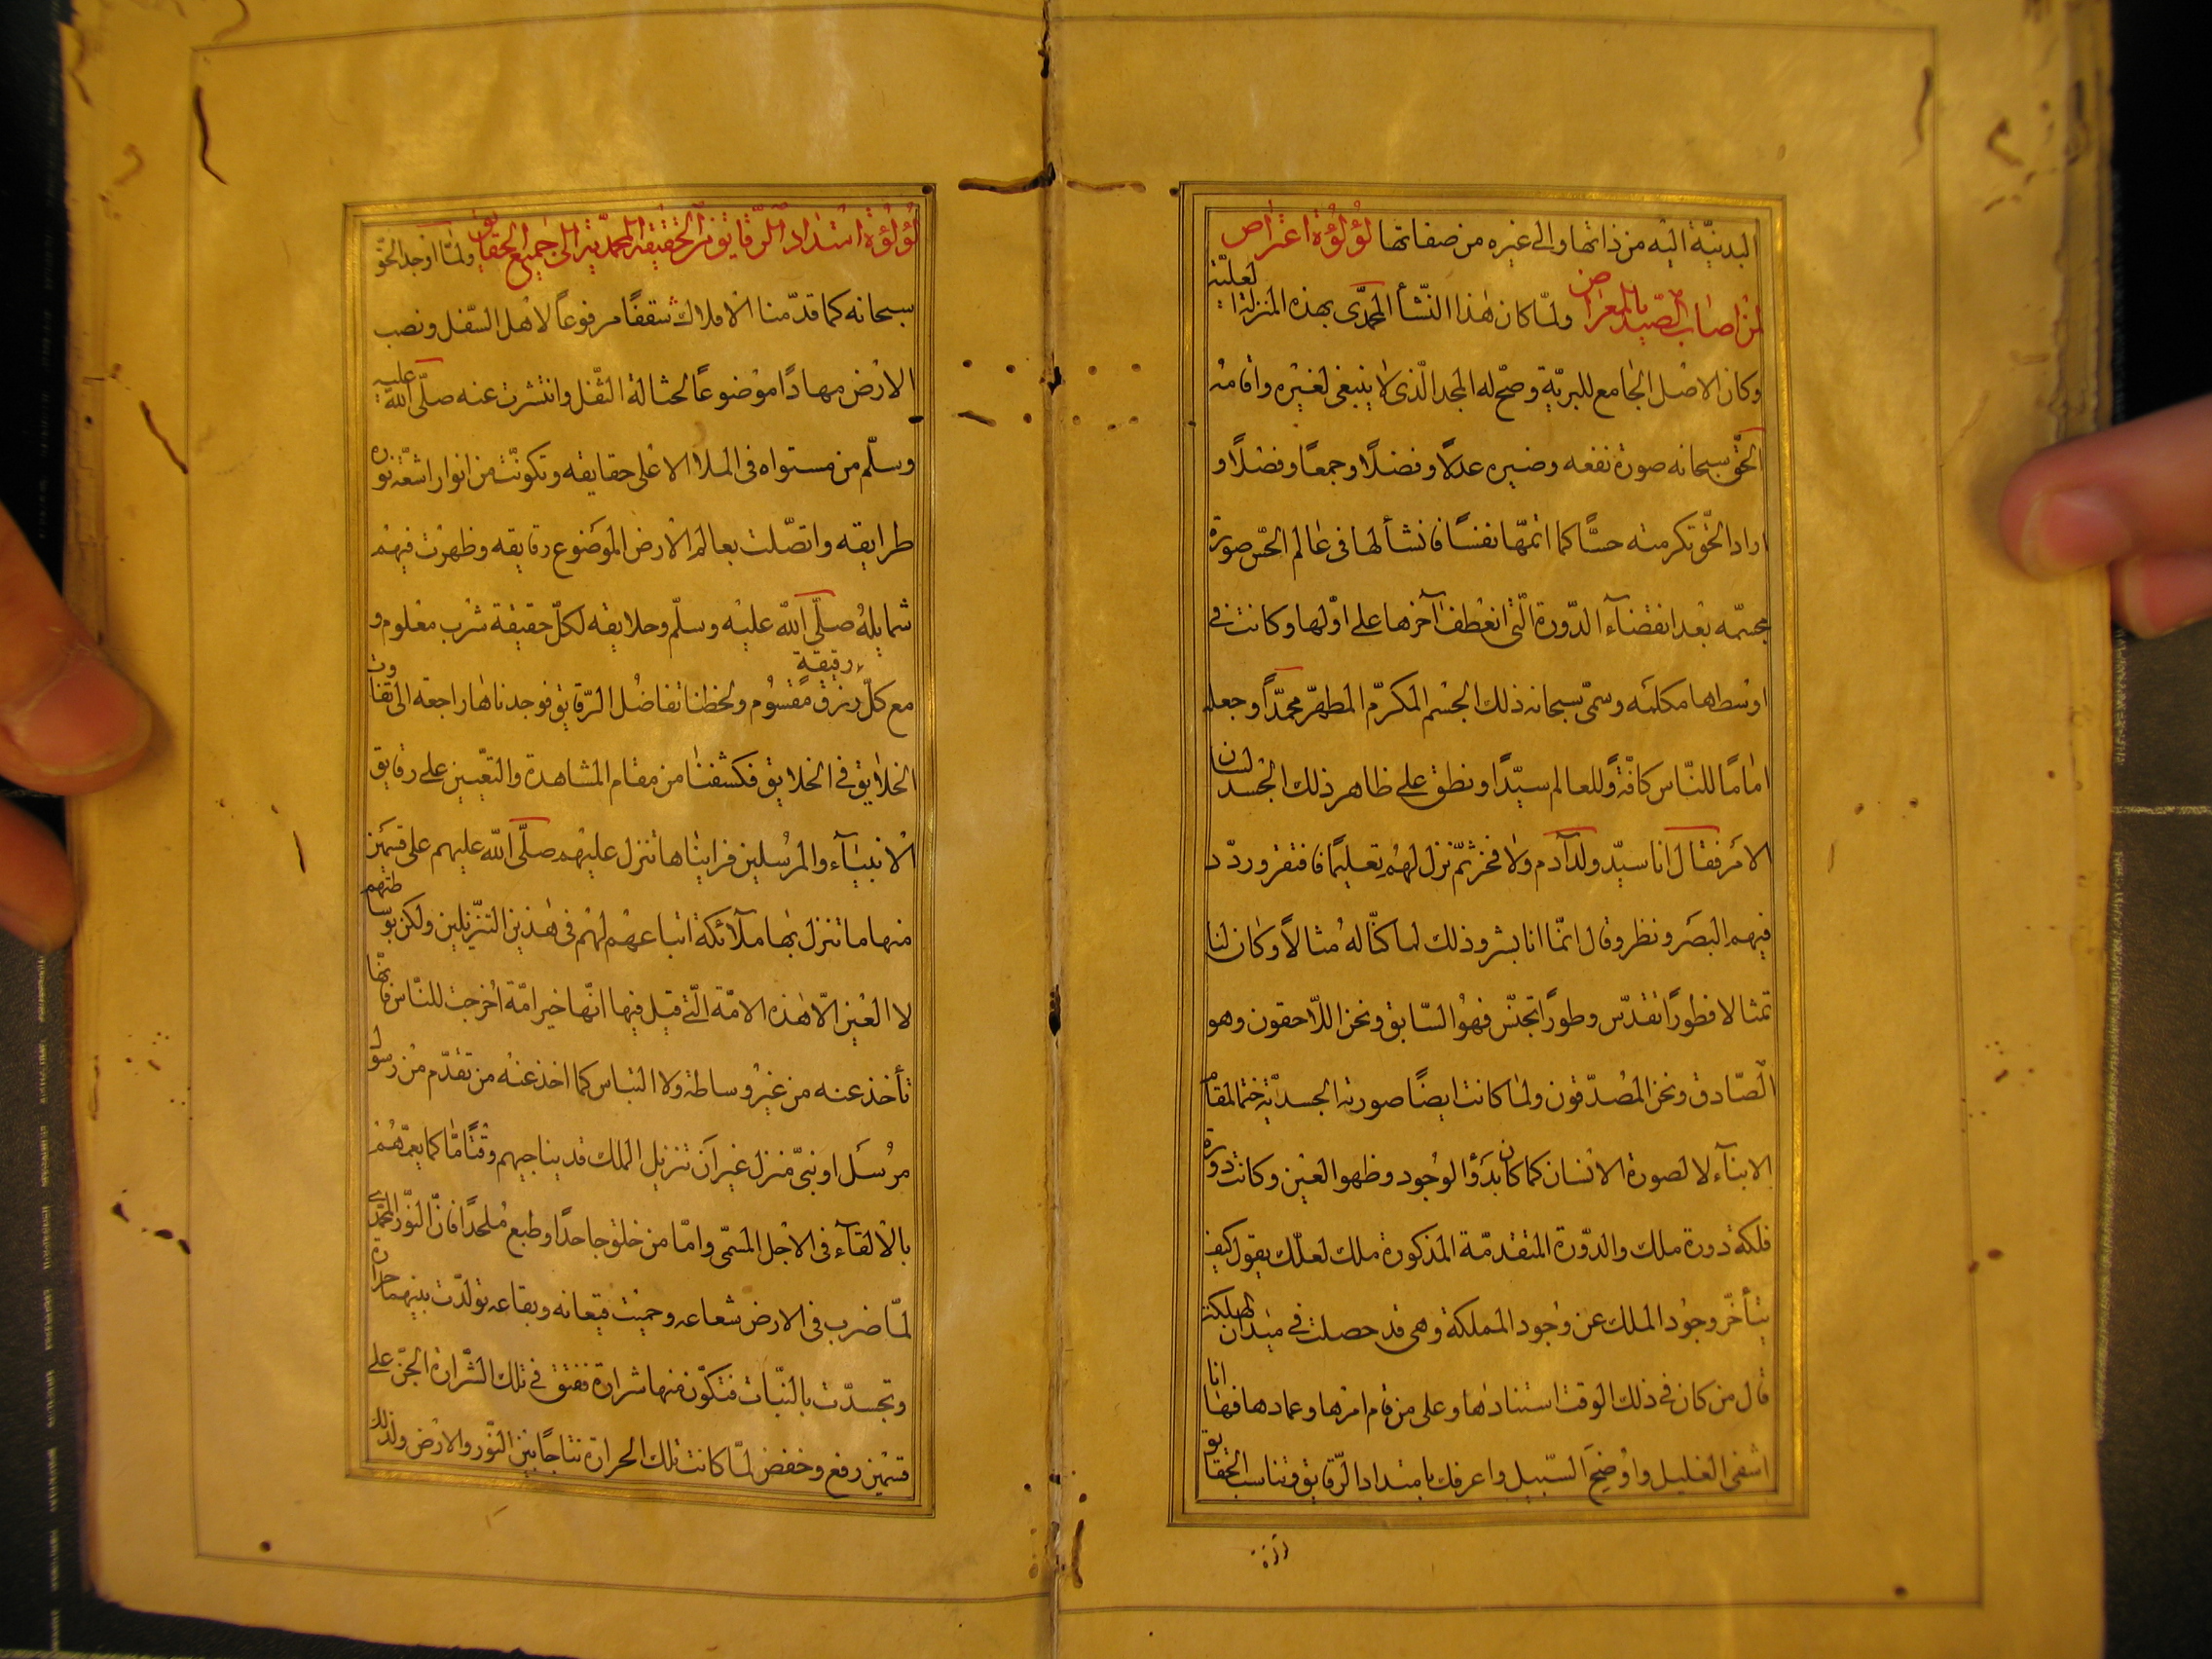 البدنيّة اليه من ذاتها والى غيره من صفاتها لؤلؤة اعتراض
لمن اصاب الصّيد بالمعراض ولمّا كان هٰذا النّشأ المحمّدى بهذه المنزلة العليّة
وكان الاصل الجامع للبريّة وصحّ له المجد الّذى لا ينبغى لغيره واقامه
الحقّ سبحانه صورة نفعه وضيره عدلًا وفضلًا وجمعًا وفضلًا و
اراد الحقّ تكرمته حسًّا كما اتمّها نفسًا فانشأ لها فى عالم الحسّ صورة
مجسّمه بعد انقضآء الدّورة الّتى انعطف آخرها على اوّلها وكانت فى
اوسطها مكلمه وسمّى سبحانه ذلك الجسم المكرّم المطهّر محمّدًا وجعله
امامًا للنّاس كافّةً وللعالم سيّدًا ونطق على ظاهر ذلك الجسد لسان
الامر فقال انا سيّد ولد آدم ولا فخر ثمّ نزل لهم تعليمًا فافتقر وردّ د
فيهم البصر ونظر وقال انمّا انا بشر وذلك لما كنّا له مثالًا وكان لنا
تمثالا فطورًا تقدّس وطورًا تجنّس فهو السّابق ونحن اللّاحقون وهو
الصّادق ونحن المصدّقون ولمّا كانت ايضًا صورته الجسديّة ختما لمقام
الابنآء لا لصورة الانسان كما كان بدؤ الوجود وظهو العين وكانت دورة
فلكه دورة ملك والدّورة المتقدمّة المذكورة ملك لعلّك يقول كيف
يتأخّر وجود الملك عن وجود المملكة وهى قد حصلت فى ميدان الهلكة
قال من كان فى ذلك الوقت استنادها وعلى من قام امرها وعمادها فها انا
اشفى الغليل واوضح السّبيل واعرفك بامتداد الرّقايق وتناسب الحقايق
لؤلؤة امتداد الرّقايق من الحقيقة المحمّديّة الى جميع الحقايق ولمّا اوجد الحقّ
سبحانه كما قدّمنا الافلاك سقفًا مرفوعاً لاهل السّفل ونصب
الارض مهادًا موضوعًا لحثالة الثّفل وانتشرت عنه صلّى الله عليه
وسلّم من مستواه فى الملأ الاعلى حقايقه وتكونّت من انوار اشعّة نوره
طرايقه واتصّلت بعالم الارض الموضوع رقايقه وظهرت فيهم
شمايله صلّى الله عليه وسلّم وحلايقه لكلّ حقيقة شرب معلوم و
مع كلّ رقيقةٍ رزق مقسوم ولحظنا تفاضل الرّقايق فوجدناها راجعة الى تفاوت
الخلايق فى الخلايق فكشفنا من مقام المشاهدة والتعّيين على رقايق
الانبيآء والمرسلين فرايناها تنزل عليهم صلّى الله عليهم على قسمين
منها ما تنزل بها ملآئكة اتباعهم لهم فى هذين التنزّيلين ولكن بوساطتهم
لا العين الّا هٰذه الامّة الّتى قيل فيها انّها خير امّة اخرجت للنّاس فانّها
تأخذ عنه من غير وساطة ولا التباس كما اخذ عنه من تقدّم من رسول
مرسل او نبىّ منزل غير ان تنزيل الملك قد يناجيهم وقتًا مّا كما يعمّهم
بالالقآء فى الاجل المسمّى وامّا من خلق جاحدًا وطبع ملحدًا فانّ النوّر المحمّدى
لمّا ضرب فى الارض شعاعه وحميت قيعانه وبقاعه تولّدت بينهما حرارة
وتجسدّت بالنّبات فتكوّن منها شرارة ففتق فى تلك الشّرارة الجنّ على
قسمين رفع وخفض لمّا كانت تلك الحرارة نتاجًا بين النوّر والارض ولذلك